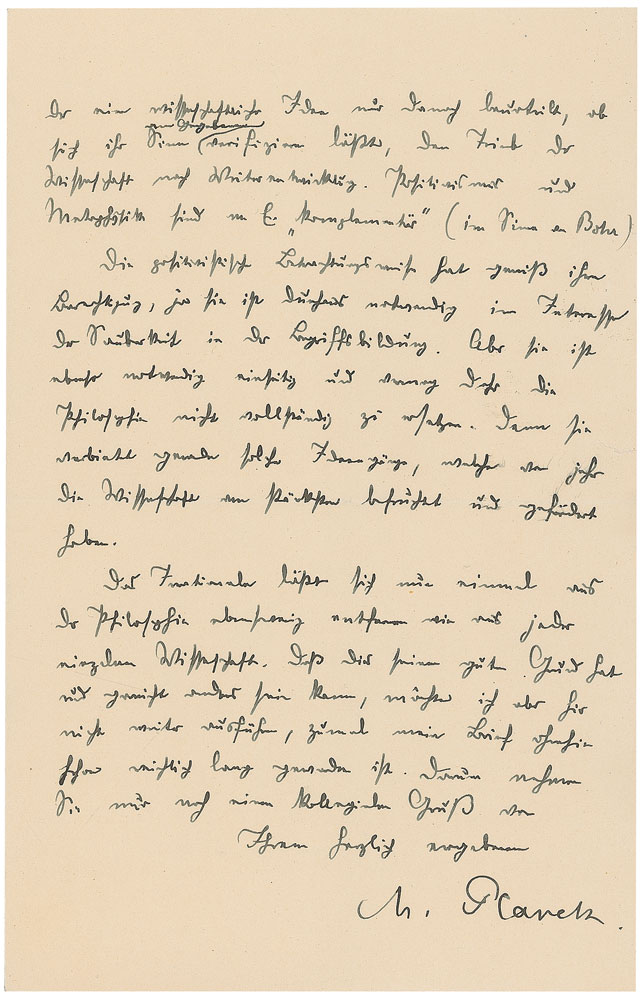 der eine wissenschaftliche Idee nur danach beurteilt, ob
sich ihr Sinn am Gegebenen verifizieren läßt, den Trieb der
Wissenschaft nach Weiterentwicklung. Positivismus und
Metaphysik sind m. E. „komplementär" (im Sinne von Bohr)
Die positivistische Betrachtungsweise hat gewiß ihre
Berechtigung, ja sie ist durchaus notwendig im Interesse
der Sauberkeit in der Begriffsbildung. Aber sie ist
ebenso notwendig einseitig und vermag daher die
Philosophie nicht vollständig zu ersetzen. Denn sie
verbietet gerade solche Ideengänge, welche von jeher
die Wissenschaft am stärksten befruchtet und gefördert
haben.
Das Irrationale läßt sich nun einmal aus
der Philosophie ebensowenig entfernen wie aus jeder
einzelnen Wissenschaft. Daß dies seinen guten Grund hat
und garnicht anders sein kann, möchte ich aber hier
nicht weiter ausführen, zumal mein Brief ohnehin
schon reichlich lang geworden ist. Darum nehmen
Sie nur noch einen kollegialen Gruß von
Ihrem herzlich ergebenen
M. Planck.